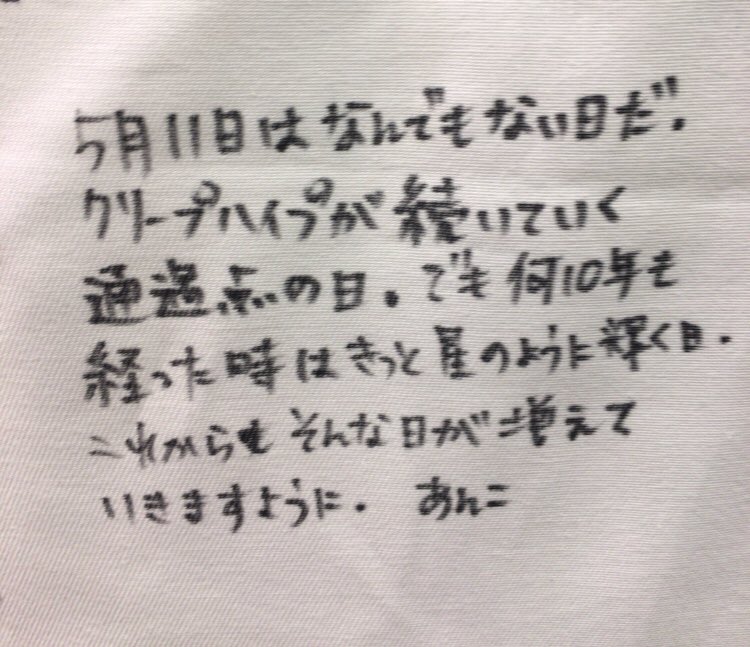 5月11日はなんでもない日だ.
クリープハイプが続いていく
通過点の日.でも何10年も
経った時はきっと星のように輝く日.
これからもそんな日が増えて
いきますように. あんこ